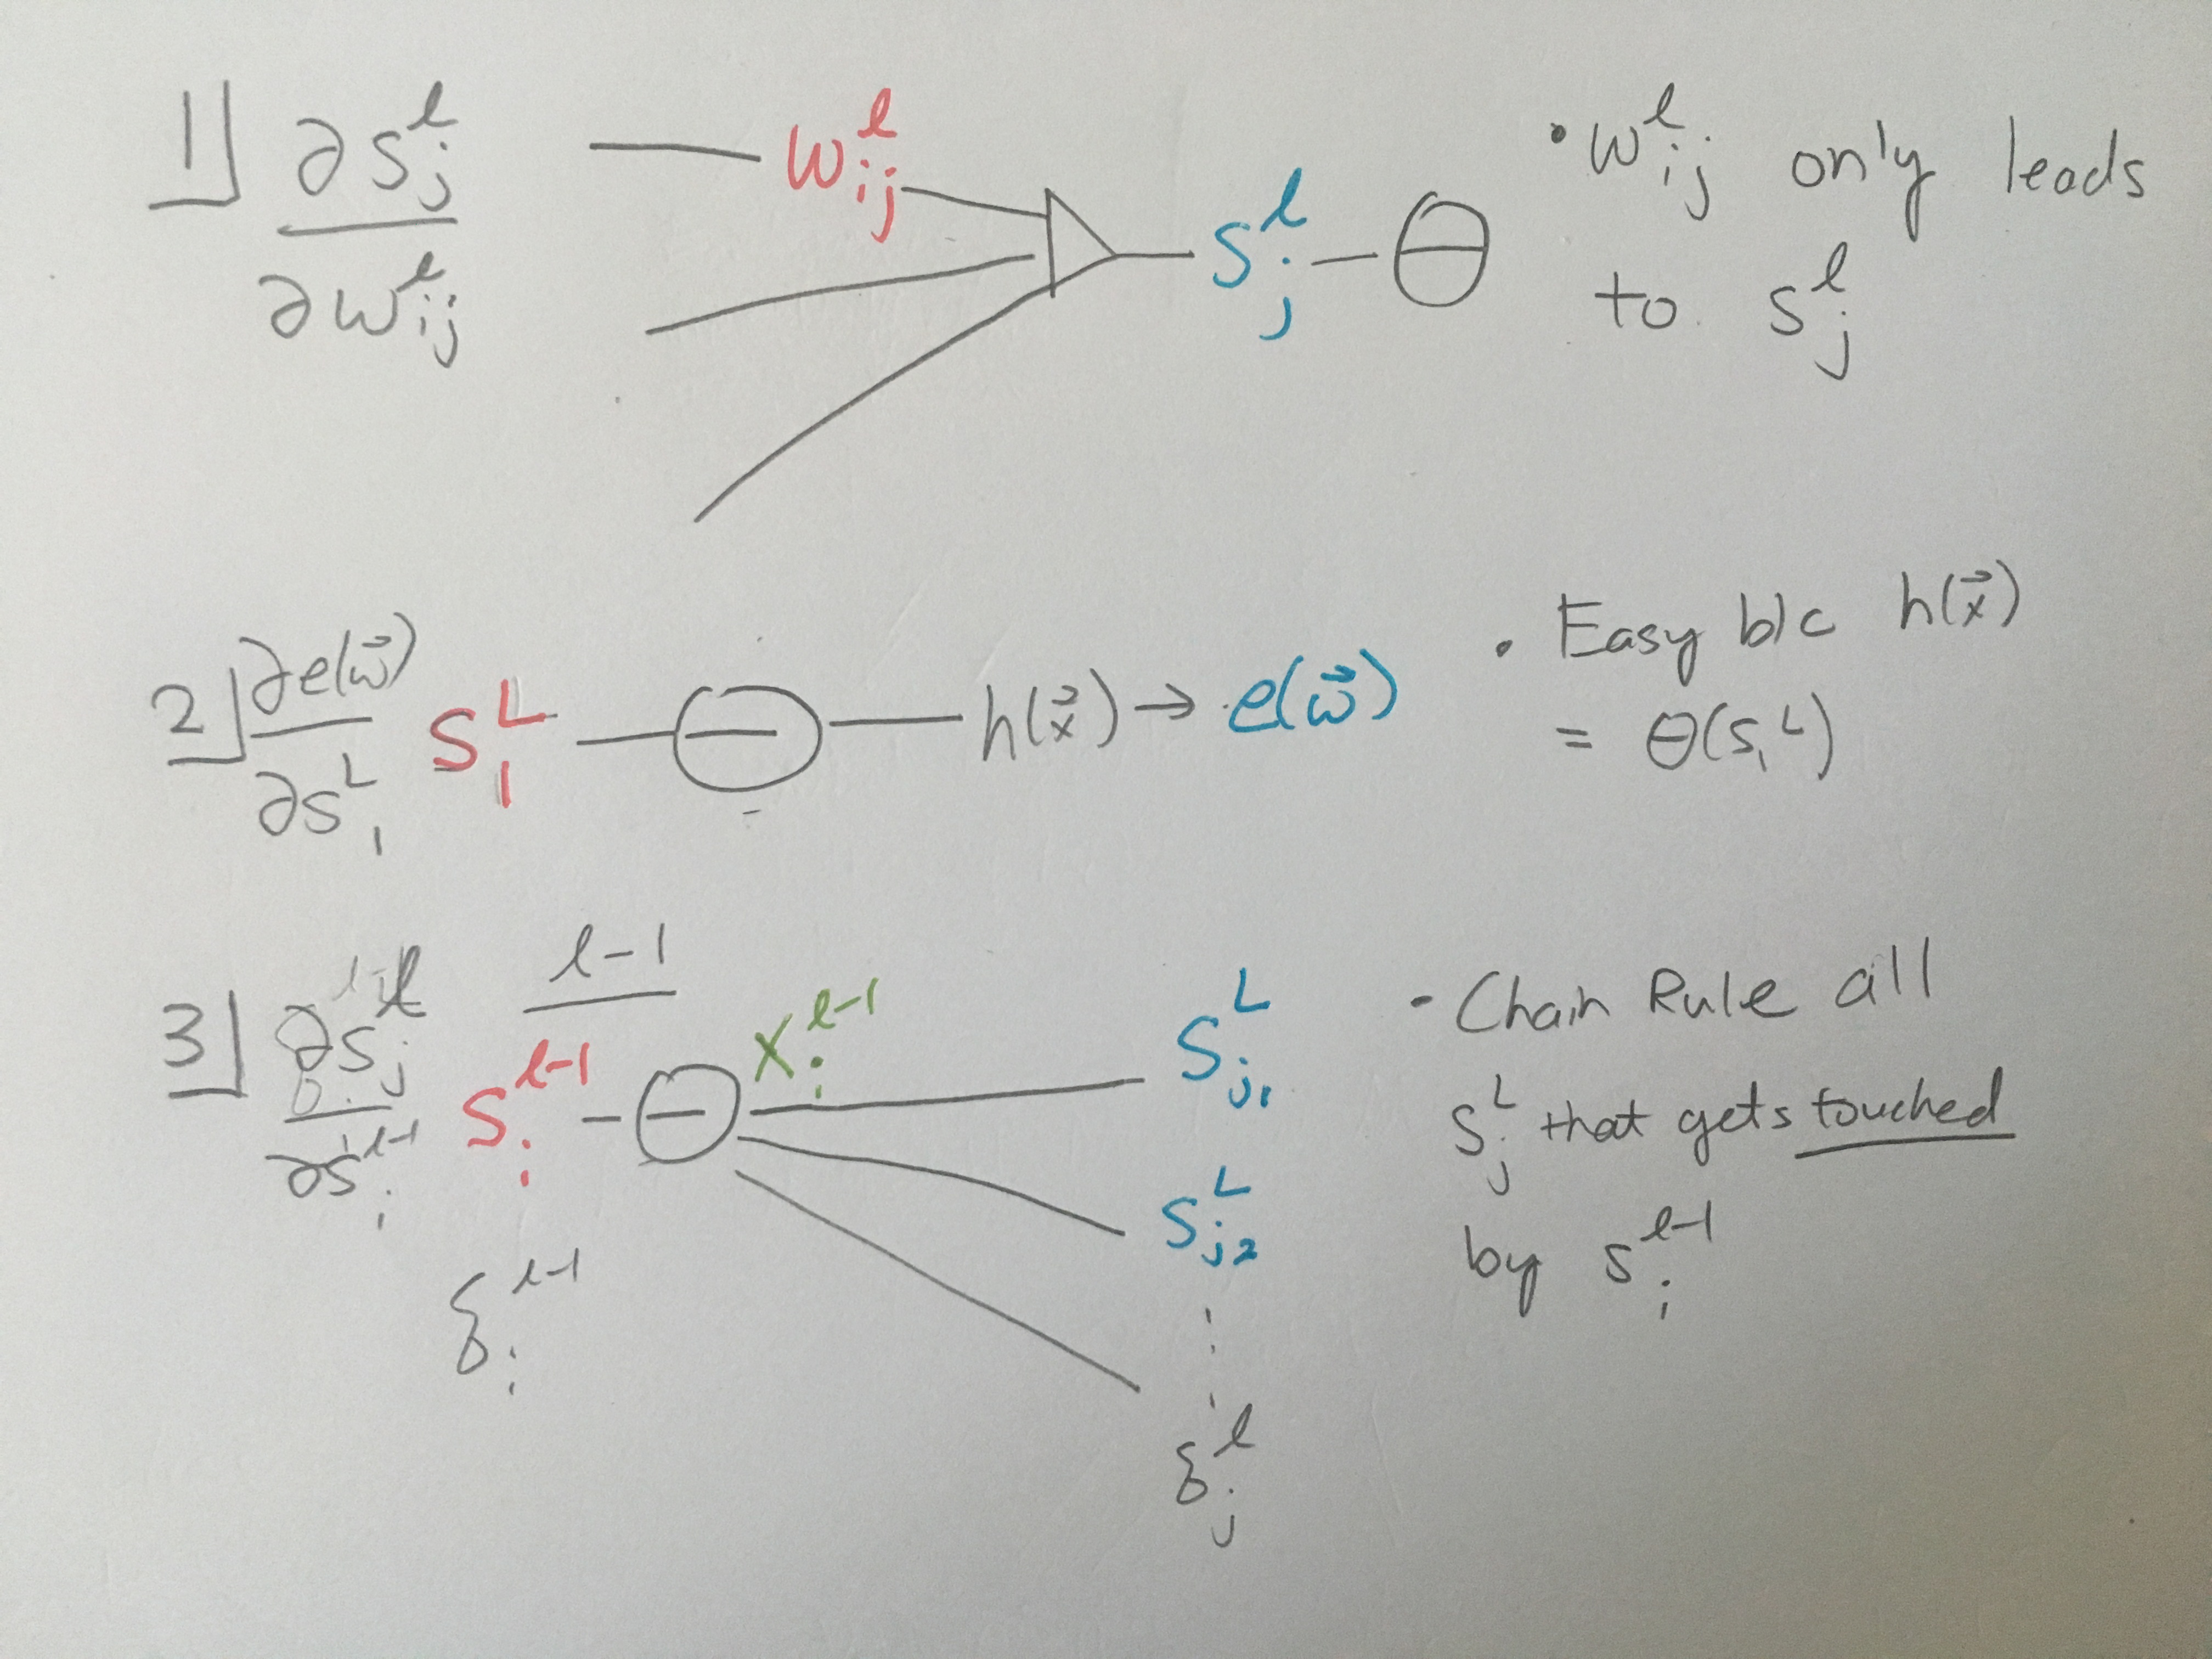 1] ∂s_j^ℓ / ∂w_ij^ℓ
w_ij^ℓ
s_j^ℓ
θ
• w_ij^ℓ only leads
to s_j^ℓ
2] ∂e(w⃗) / ∂s_1^L
s_1^L
θ
h(x⃗) → e(w⃗)
• Easy b/c h(x⃗)
= θ(s_1^L)
3] ∂s_j^ℓ / ∂s_i^ℓ-1
ℓ-1
s_i^ℓ-1
θ
x_i^ℓ-1
s_j1^L
s_j2^L
⋮
δ_i^ℓ-1
δ_j^ℓ
- Chain Rule all
s_j^L that gets touched
by s_i^ℓ-1